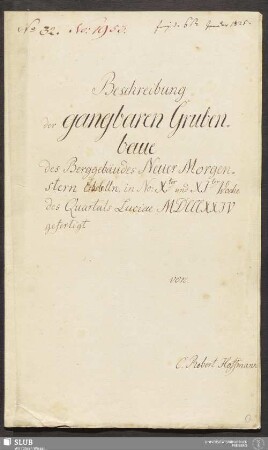 No 32. No: 195
Beschreibung
der gangbaren Gruben-
baue
des Berggebäudes Neuer Morgen-
stern Erbstolln, in No: Xter und XIter Woche
des Quartals Luciae MDCCCXXIV
gefertigt
von
C. Robert Hoffmann
SLUB